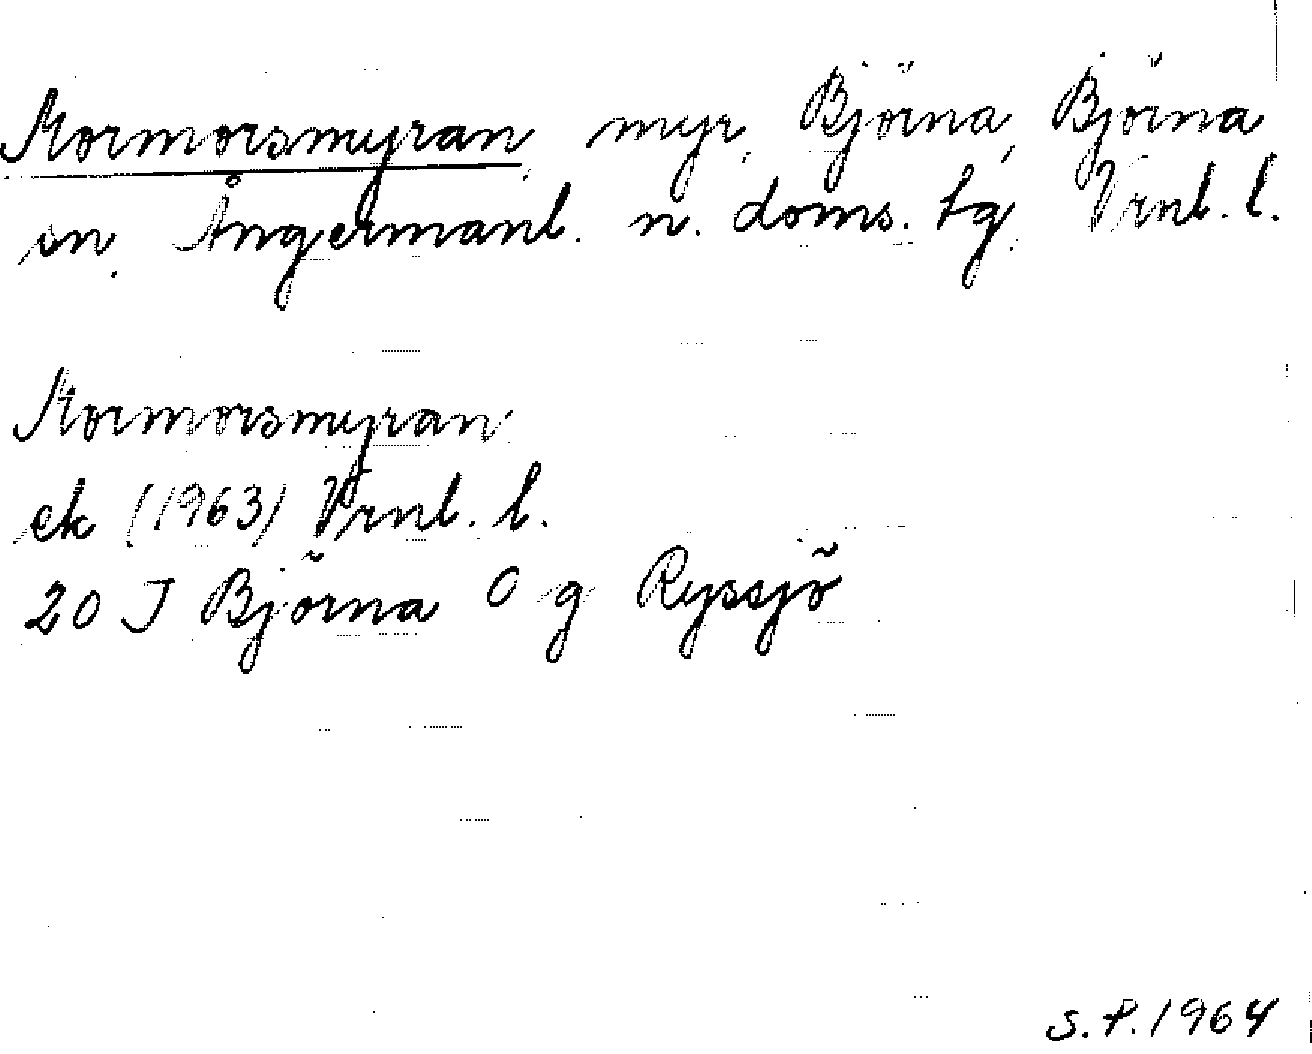 Mormorsmyran, myr, Björna, Björna
sn. Ångermanl. n. doms. tg. Vrnl. l.
Mormorsmyran
ek (1963) Vrnl. l.
20 J Björna 0 g Ryssjö
S.P. 1964